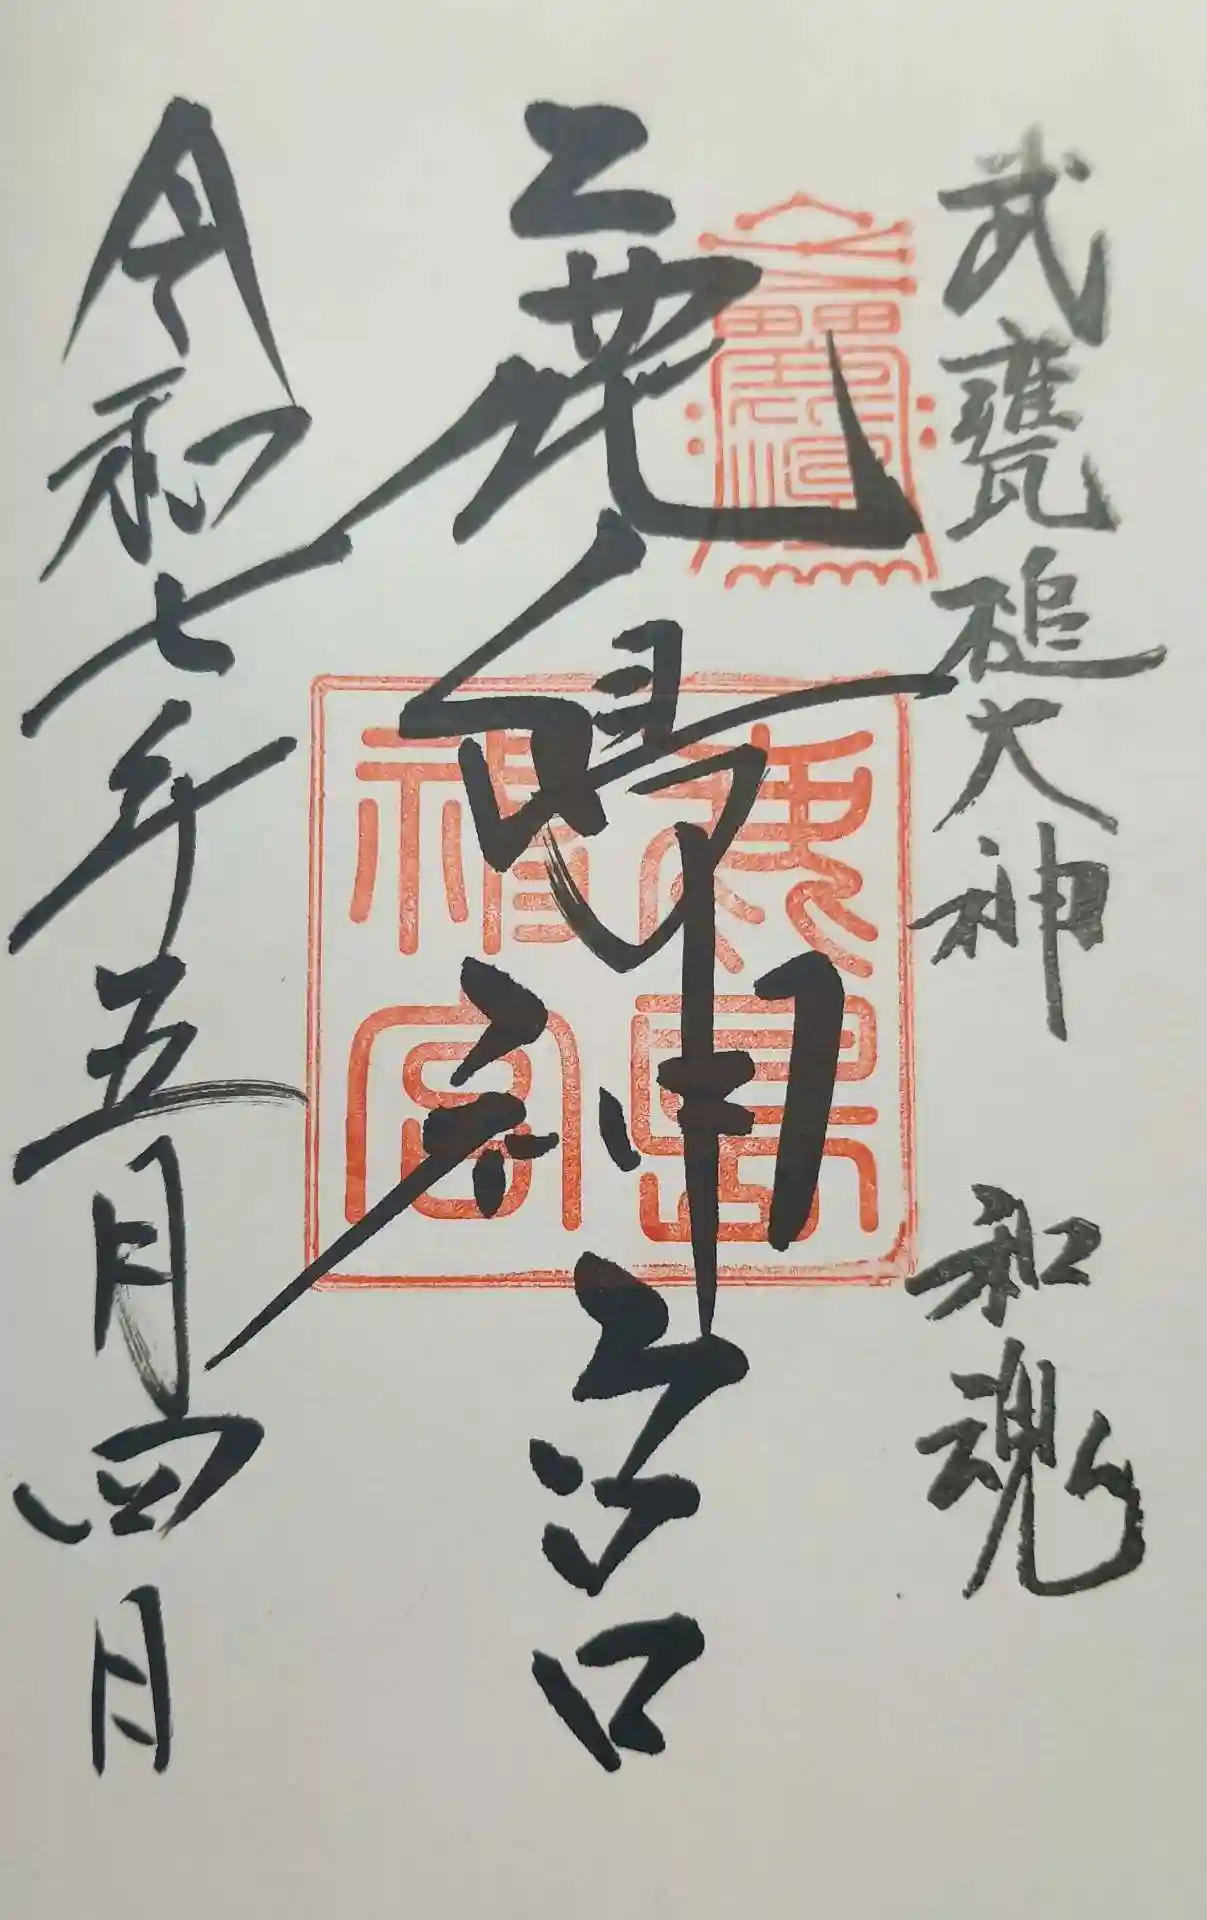 武甕槌大神 和魂
鹿島神宮
令和七年五月四日
鹿島
神宮